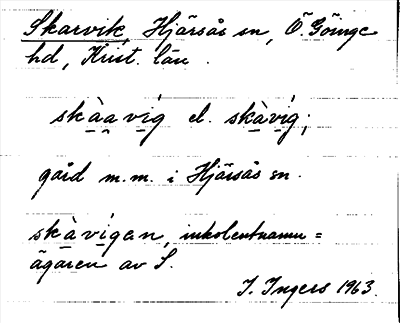 Skarvik, Hjärsås sn, Ö. Göinge
hd, Krist. län.
skàavíg el. skàvíg;
gård m.m. i Hjärsås sn.
skàvígen, inkolentnamn =
ägaren av S.
I. Ingers 1963.